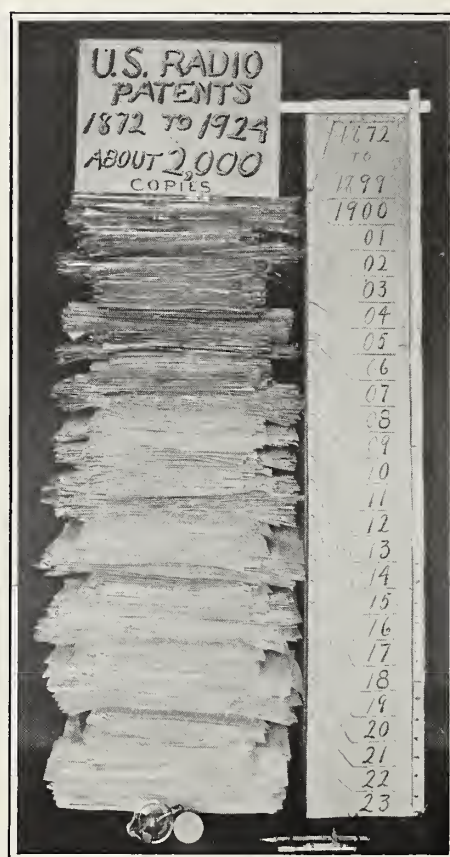 U.S. RADIO
PATENTS
1872 TO 1924
ABOUT 2,000
COPIES
1872
TO
1899
1900
01
02
03
04
05
06
07
08
09
10
11
12
13
14
15
16
17
18
19
20
21
22
23